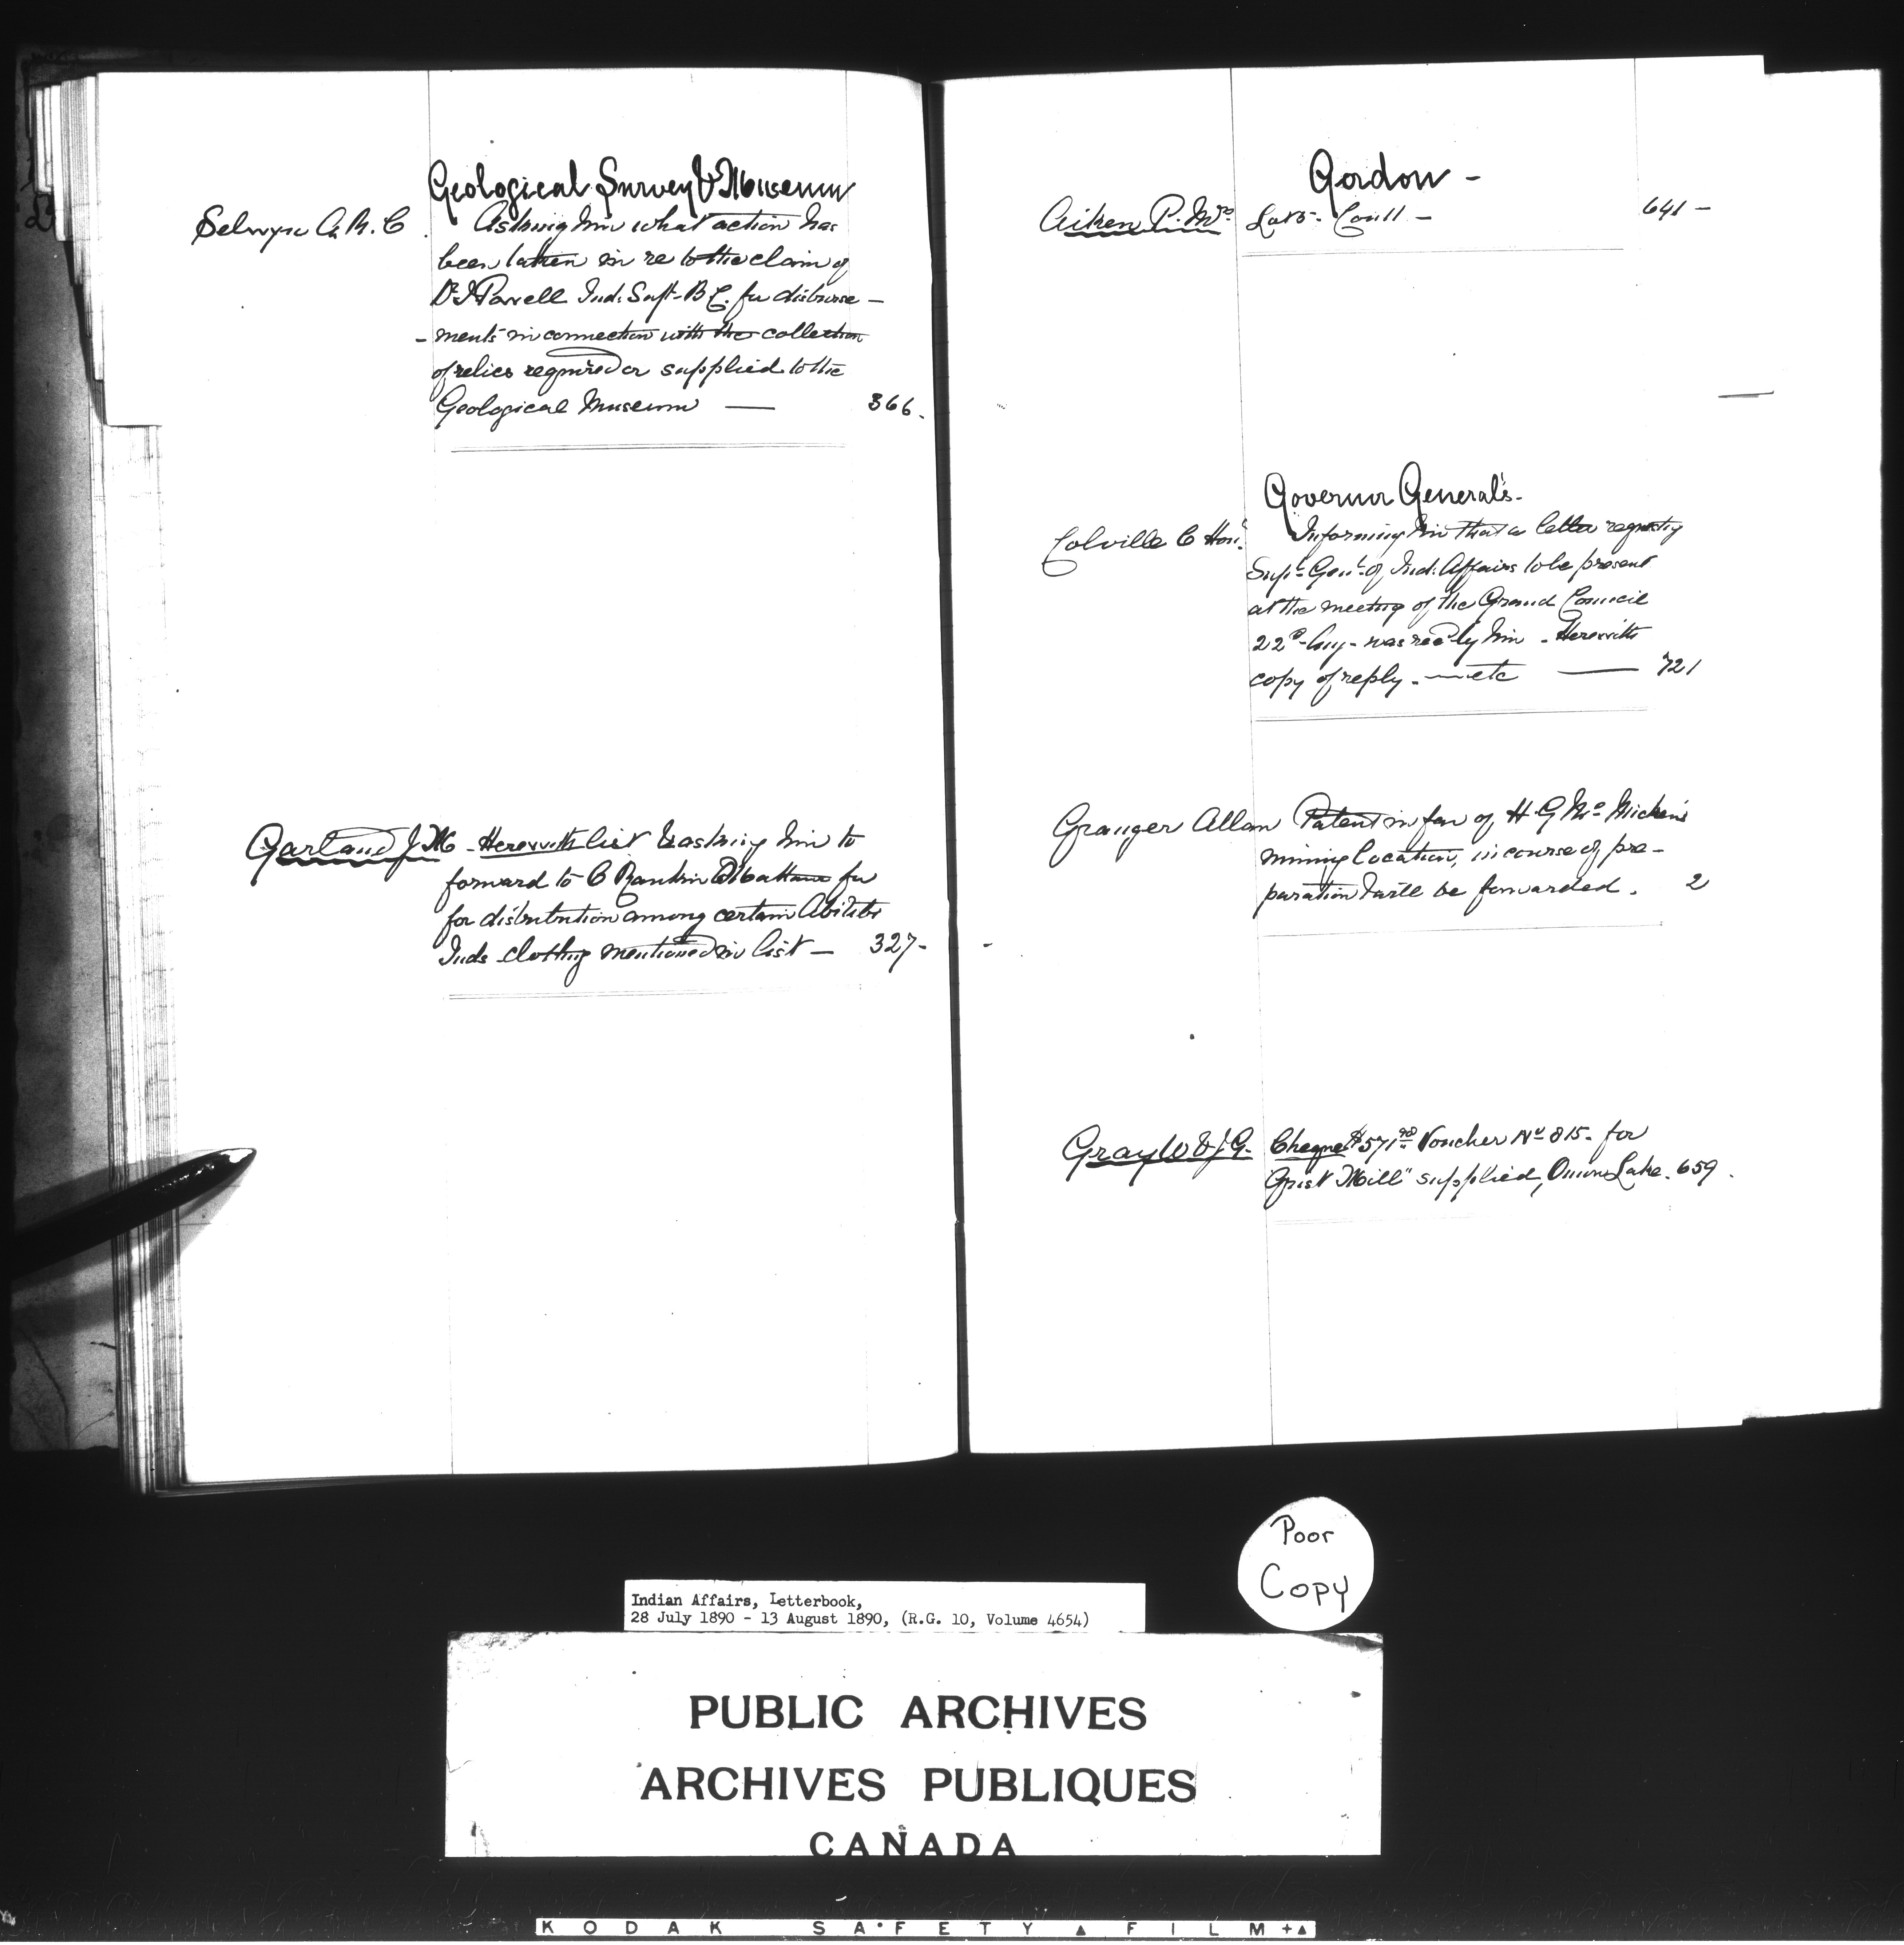 Geological Survey & Museum
Selwyn A.R.C. Asking him what action has
been taken in re to the claim of
Dr I Powell Ind: Supt- B C. for disburse -
- ments in connection with the collection
of relics required or supplied to the
Geological Museum — 366.
Garland J M - Herewith list & asking him to
forward to C Rankin Mattawa for
for distribution among certain Abitibi
Inds clothing mentioned in list — 327-
Gordon -
Aiken P. Mrs 641 -
Governor General's-
Colville C Hon: Informing him that a letter requestg
Supt- Genl- of Ind: Affairs to be present
at the meeting of the Grand Council
22d- was recd by him - Herewith
copy of reply - etc — 721
Granger Allan Patent in fav of H. G Mc Micken's
mining location, in course of pre-
paration & will be forwarded. 2
Gray W & J. G. Cheque $571 Voucher No 815- for
Grist Mill" supplied, Onion Lake. 659.
Poor
Copy
Indian Affairs, Letterbook,
28 July 1890 - 13 August 1890, (R.G. 10, Volume 4654)
PUBLIC ARCHIVES
ARCHIVES PUBLIQUES
CANADA
KODAK SAFETY FILM